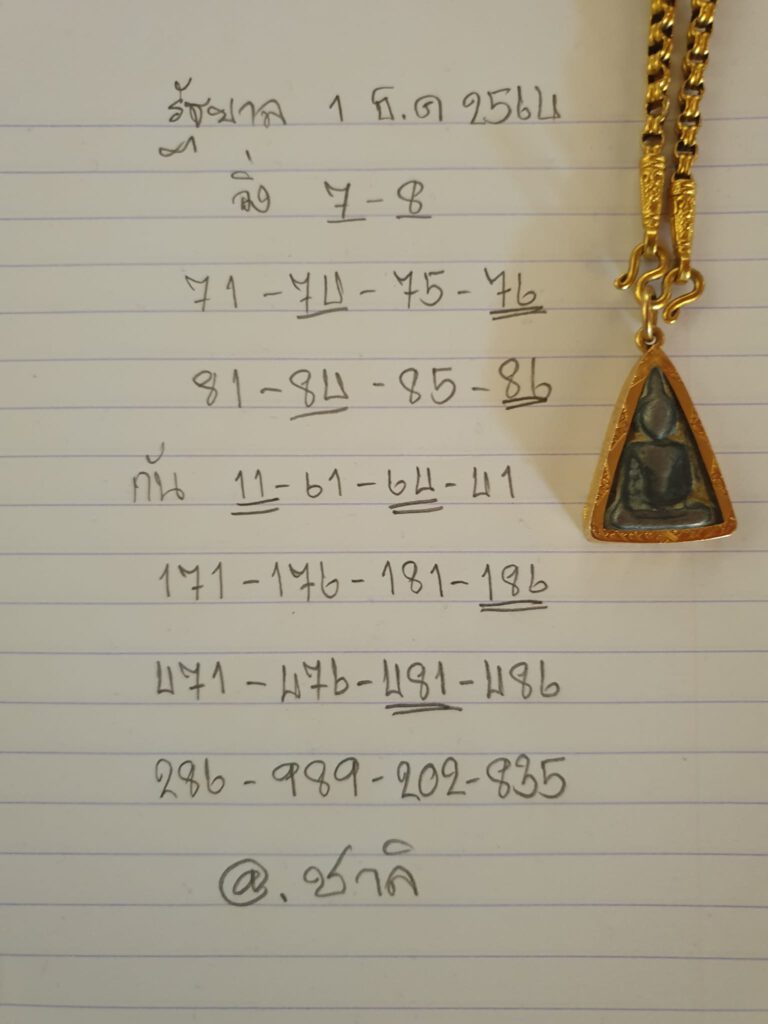 รัฐบาล 1 ธ.ค 2564
วิ่ง 7-8
71-74-75-76
81-84-85-86
กัน 11-61-64-41
171-176-181-186
471-476-481-486
286-989-202-835
@.ชาลี